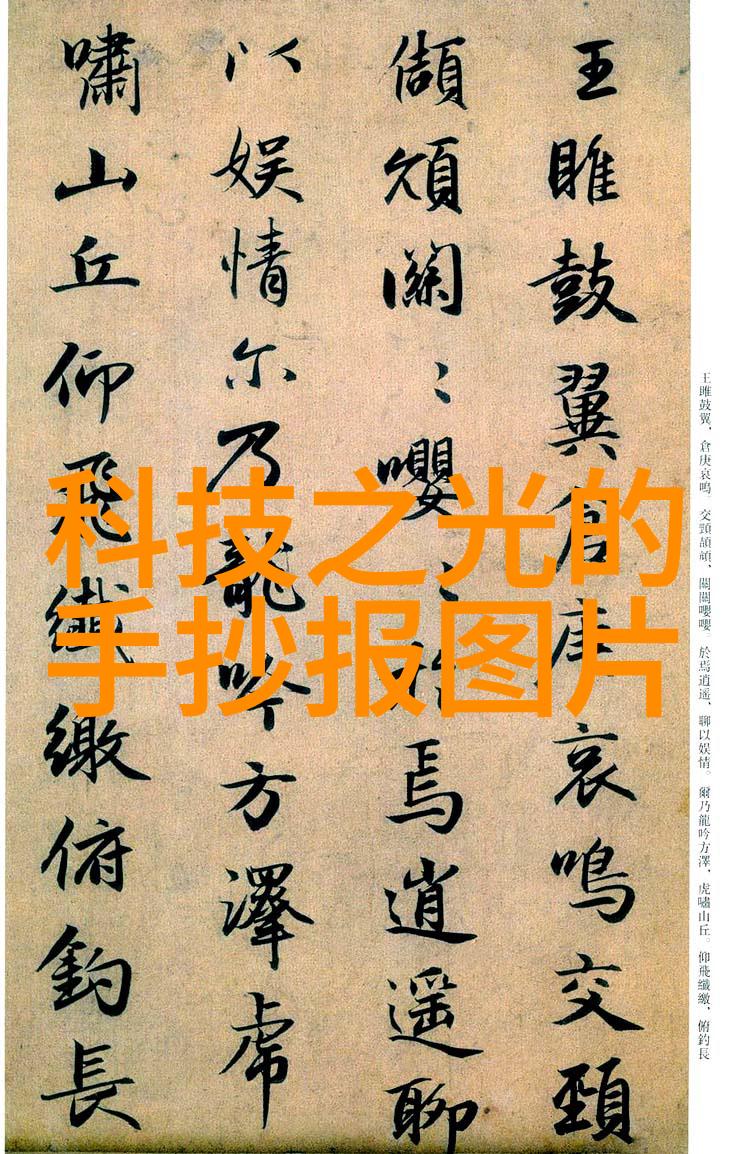 科技之光的
手抄报图片
王雎鼓翼倉庚哀鳴交頸
頡頏關〻嚶〻於焉逍遥聊
以娱情尔乃龍吟方澤虎
嘯山丘仰飛纖繳俯釣長
王雎鼓翼、倉庚哀鳴。交頸頡頏、關關嚶嚶。於焉逍遥、聊以娱情。爾乃龍吟方澤、虎嘯山丘。仰飛纖繳、俯釣長